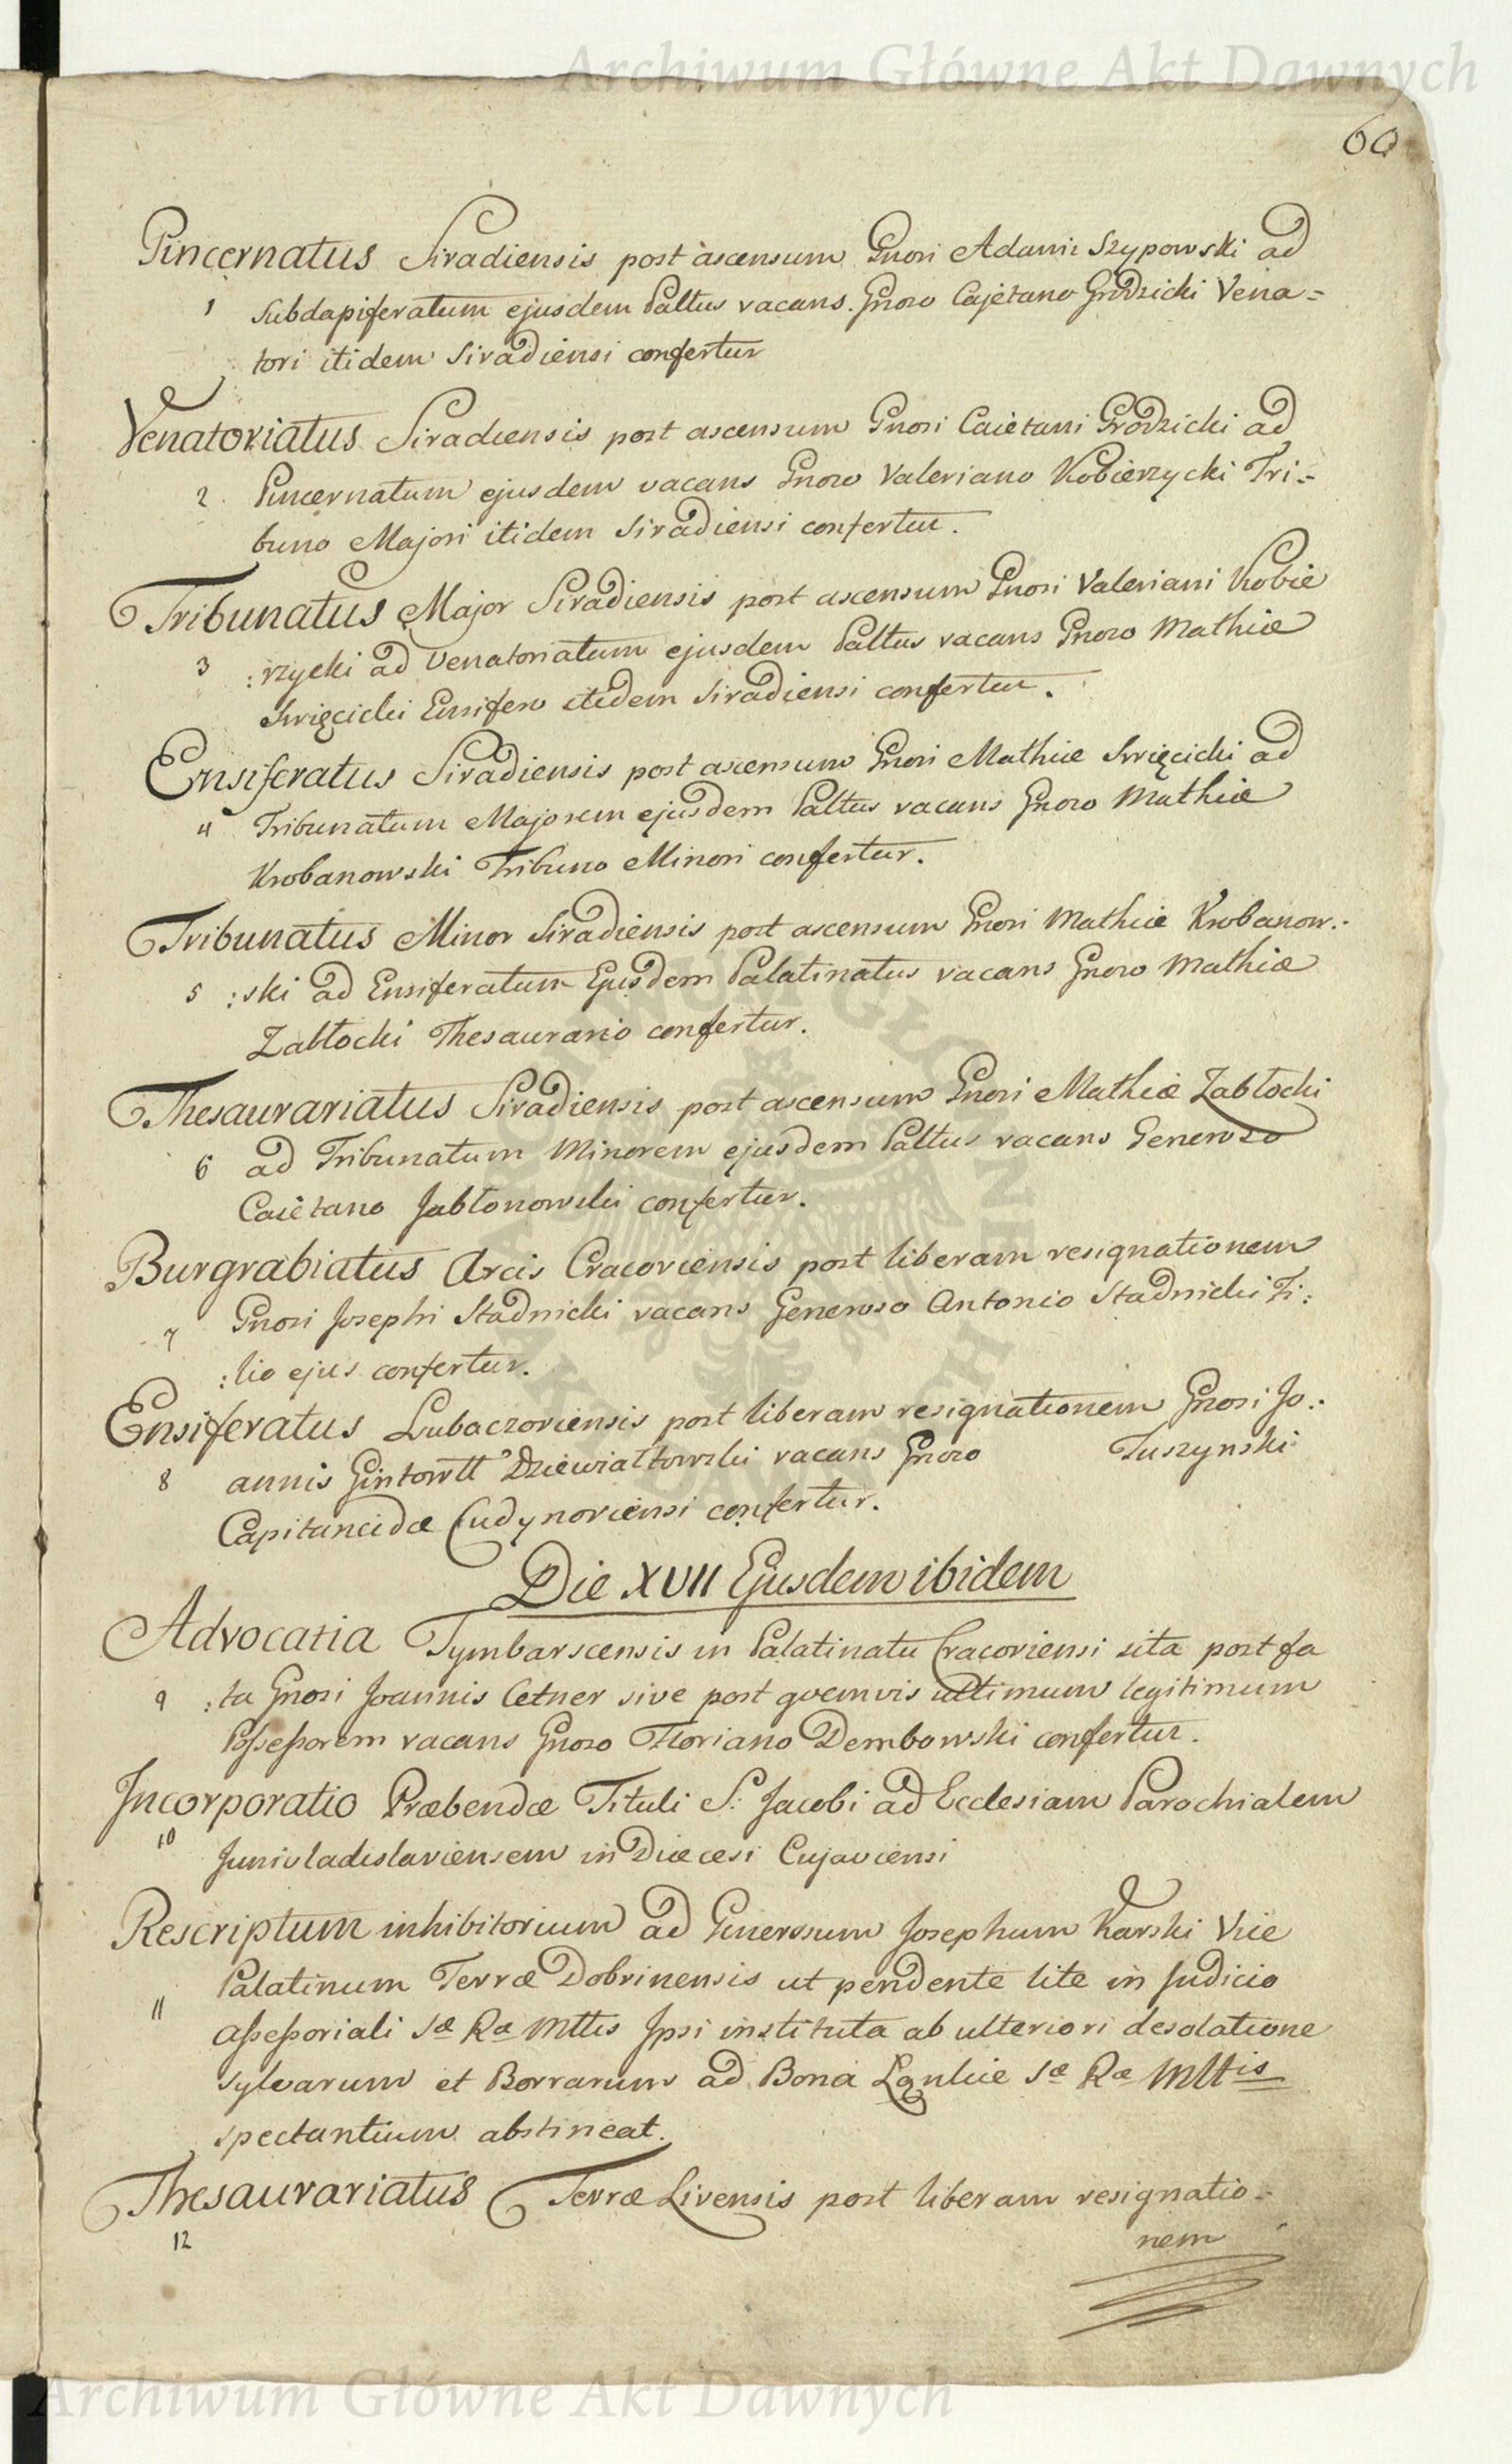 Archiwum Główne Akt Dawnych
60
Pincernatus Siradiensis post ascensum Gnosi Adami Szypowski ad
1 Subdapiferatum ejusdem Palttus vacans. Gnoso Cajetano Grodzicki Vena=
tori itidem Siradiensi confertur
Venatoriatus Siradiensis post ascensum Gnosi Caietani Grodzicki ad
2 Pincernatum ejusdem vacans Gnoso Valeriano Kobierzycki Tri=
buno Majori itidem Siradiensi confertur.
Tribunatus Major Siradiensis post ascensum Gnosi Valeriani Kobie
3 :rzycki ad Venatoriatum ejusdem Palttus vacans Gnoso Mathiæ
Swięcicki Ensifero itidem Siradiensi confertur.
Ensiferatus Siradiensis post ascensum Gnosi Mathiæ Swięcicki ad
4 Tribunatum Majorem ejusdem Palttus vacans Gnoso Mathiæ
Krobanowski Tribuno Minori confertur.
Tribunatus Minor Siradiensis post ascensum Gnosi Mathiæ Krobanow:
5 :ski ad Ensiferatum Ejusdem Palatinatus vacans Gnoso Mathiæ
Zabłocki Thesaurario confertur.
Thesaurariatus Siradiensis post ascensum Gnosi Mathiæ Zabłocki
6 ad Tribunatum Minorem ejusdem Palttus vacans Generoso
Caietano Jabłonowski confertur.
Burgrabiatus Arcis Cracoviensis post liberam resignationem
7 Gnosi Josephi Stadnicki vacans Generoso Antonio Stadnicki Fi:
:lio ejus confertur.
Ensiferatus Lubaczoviensis post liberam resignationem Gnosi Jo:
8 annis Gintowtt Dziewiałtowski vacans Gnoso Tuszynski
Capitaneidæ Cudynoviensi confertur.
Die XVII Ejusdem ibidem
Advocatia Tymbarscensis in Palatinatu Cracoviensi sita post fa
9 :ta Gnosi Joannis Cetner sive post quemvis ultimum legitimum
Possessorem vacans Gnoso Floriano Dembowski confertur.
Incorporatio Præbendæ Tituli S: Jacobi ad Ecclesiam Parochialem
10 Junivladislaviensem in Diæcesi Cujaviensi
Rescriptum inhibitorium ad Generosum Josephum Karski Vice
Palatinum Terræ Dobrinensis ut pendente lite in Judicio
11 Assessoriali Sæ Ræ Mttis Ipsi instituta ab ulteriori desolatione
sylvarum et Borrarum ad Bona Łąnkie Sæ Ræ Mttis
spectantium abstineat.
Thesaurariatus Terræ Livensis post liberam resignatio=
12
nem
Archiwum Główne Akt Dawnych